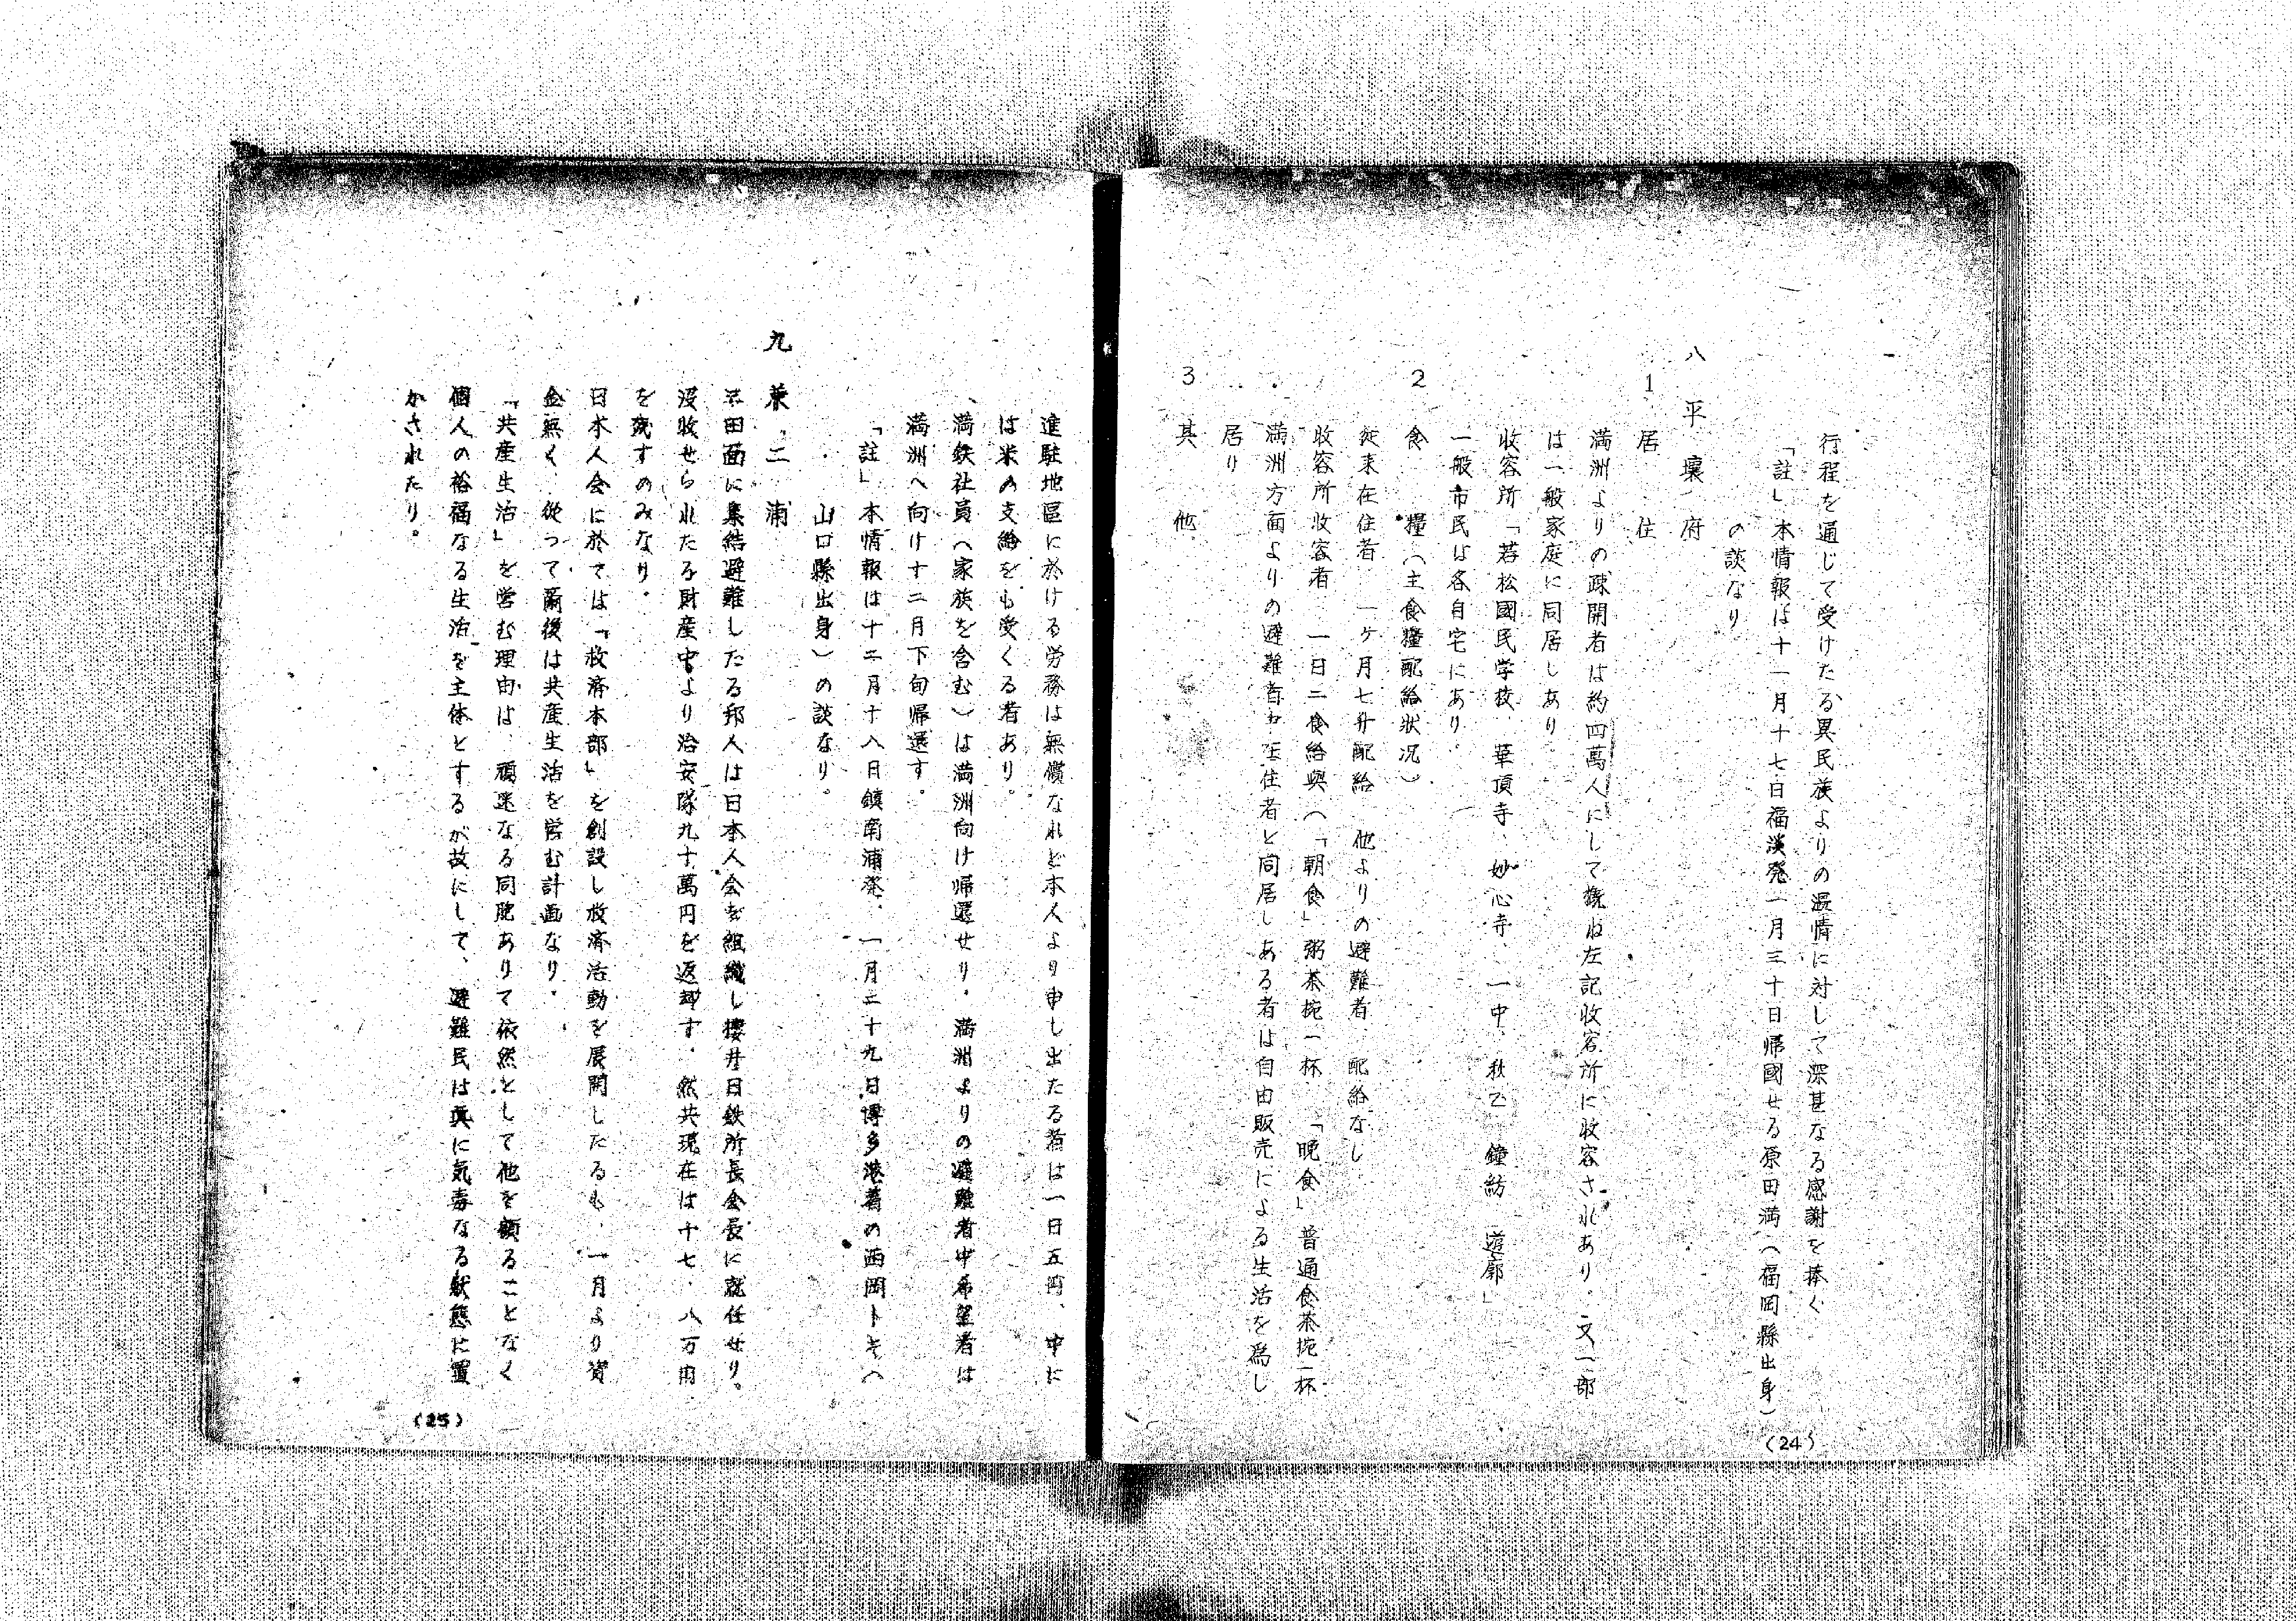 行程を通じて受けたる異民族よりの温情に対して深甚なる感謝を捧ぐ
「註」本情報は十一月十七日福淡発一月三十日帰國せる原田満(福岡縣出身)
の談なり
八 平壤府
1 居住
満洲よりの疎開者は約四萬人にして概ね左記收容所に收容されあり、又一部
は一般家庭に同居しあり
收容所「若松國民学校、華頂寺、妙心寺、一中、秋乙 鐘紡 遊廓」
一般市民は各自宅にあり
2 食糧(主食糧配給狀況)
從来在住者 一ヶ月七升配給 他よりの避難者 配給なし
收容所收容者 一日二食給與(「朝食」粥茶碗一杯 「晩食」普通食茶碗一杯
満洲方面よりの避難者 在住者と同居しある者は自由販売による生活を爲し
居り
3 其他
(24)
進駐地區に於ける労務は無償なれど本人より申し出たる者は一日五円、中に
は米の支給をも受くる者あり。
満鉄社員(家族を含む)は満洲向け帰還せり。満洲よりの避難者中希望者は
満洲へ向け十二月下旬帰還す。
「註」本情報は十二月十八日鎮南浦発、一月二十九日博多港着の西岡トキ(
山口縣出身)の談なり。
九 兼二浦
田面に集結避難したる邦人は日本人会を組織し櫻井日鉄所長会長に就任せり。
没收せられたる財産中より治安隊九十萬円を返却す、然共現在は十七、八万円
を残すのみなり。
日本人会に於ては「救済本部」を創設し救済活動を展開したるも、一月より資
金無く、從って爾後は共産生活を営む計画なり。
「共産生活」を営む理由は、頑迷なる同胞ありて依然として他を顧ることなく
個人の裕福なる生活を主体とするが故にして、避難民は真に気毒なる狀態に置
かされたり。
(25)